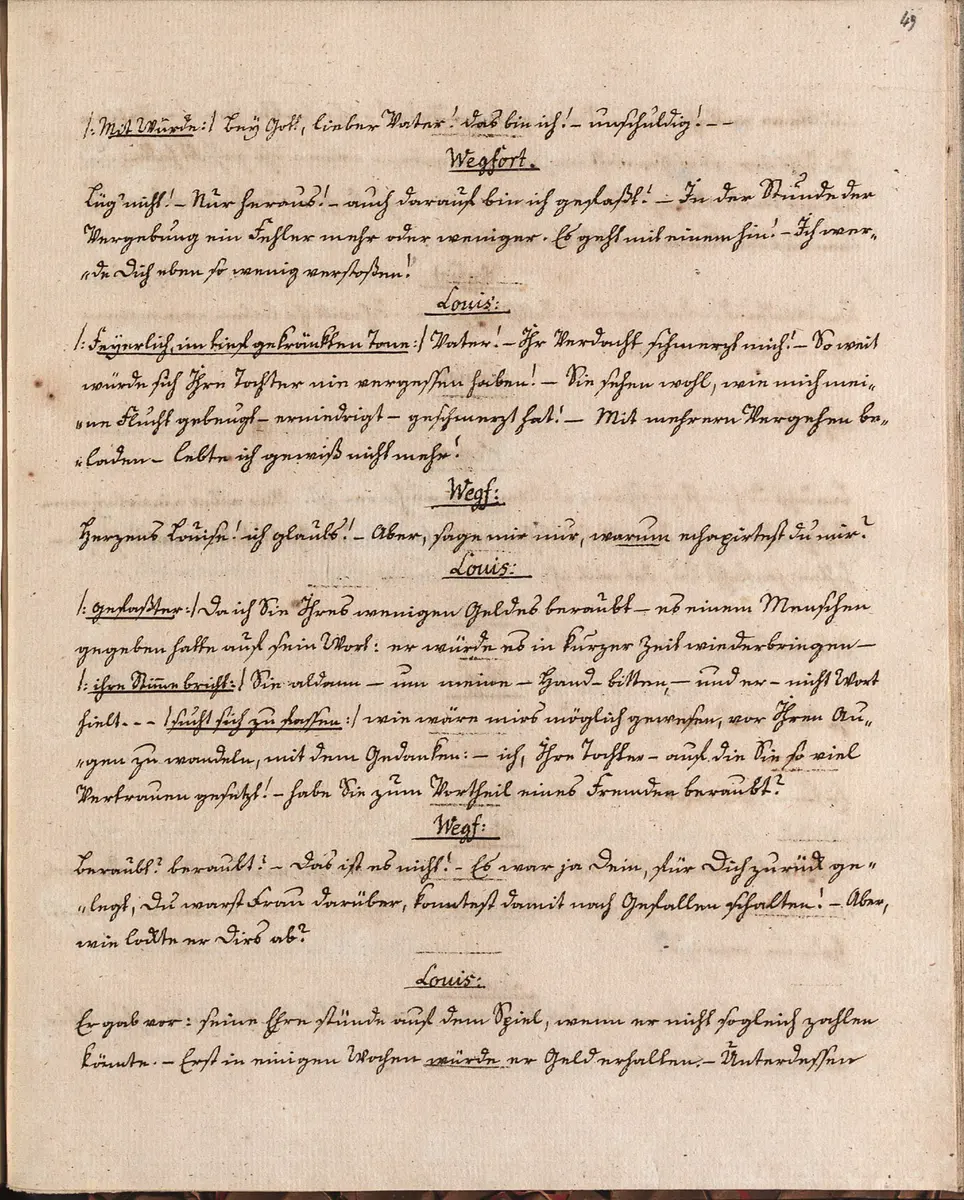 49
/: Mit Würde :/ Bey Gott, lieber Vater! das bin ich! – unschuldig! – –
Wegfort.
Lüg' nicht! – Nur heraus! – auch darauf bin ich gefaßt! – In der Stunde der
Vergebung ein Fehler mehr oder weniger. Es geht mit einem hin! – Ich wer„
„de Dich eben so wenig verstoßen!
Louis:
/: Feyerlich, im tief gekränkten Tone :/ Vater! – Ihr Verdacht schmerzt mich! – So weit
würde sich Ihre Tochter nie vergessen haben! – Sie sehen wohl, wie mich mei„
„ne Flucht gebeugt – erniedrigt – geschmerzt hat! – Mit mehrern Vergehen be„
„laden – lebte ich gewiß nicht mehr!
Wegf:
Herzens Louise! ich glaubs! – Aber, sage mir nur, warum echapirtest du mir?
Louis:
/: gefaßter :/ Da ich Sie Ihres wenigen Geldes beraubt – es einem Menschen
gegeben hatte auf sein Wort: er würde es in kurzer Zeit wiederbringen –
/: ihre Stimme bricht :/ Sie aldann – um meine – Hand – bitten, – und er – nicht Wort
hielt - - - /: sucht sich zu fassen :/ wie wäre mirs möglich gewesen, vor Ihren Au„
„gen zu wandeln, mit dem Gedanken: – ich, Ihre Tochter – auf die Sie so viel
Vertrauen gesetzt! – habe Sie zum Vortheil eines Fremden beraubt?
Wegf:
Beraubt? beraubt? – Das ist es nicht! – Es war ja Dein, für Dich zurück ge„
„legt, Du warst Frau darüber, konntest damit nach Gefallen schalten! – Aber,
wie lockte er Dirs ab?
Louis:
Er gab vor: seine Ehre stünde auf dem Spiel, wenn er nicht sogleich zahlen
könnte. – Erst in einigen Wochen würde er Geld erhalten. – Unterdessen